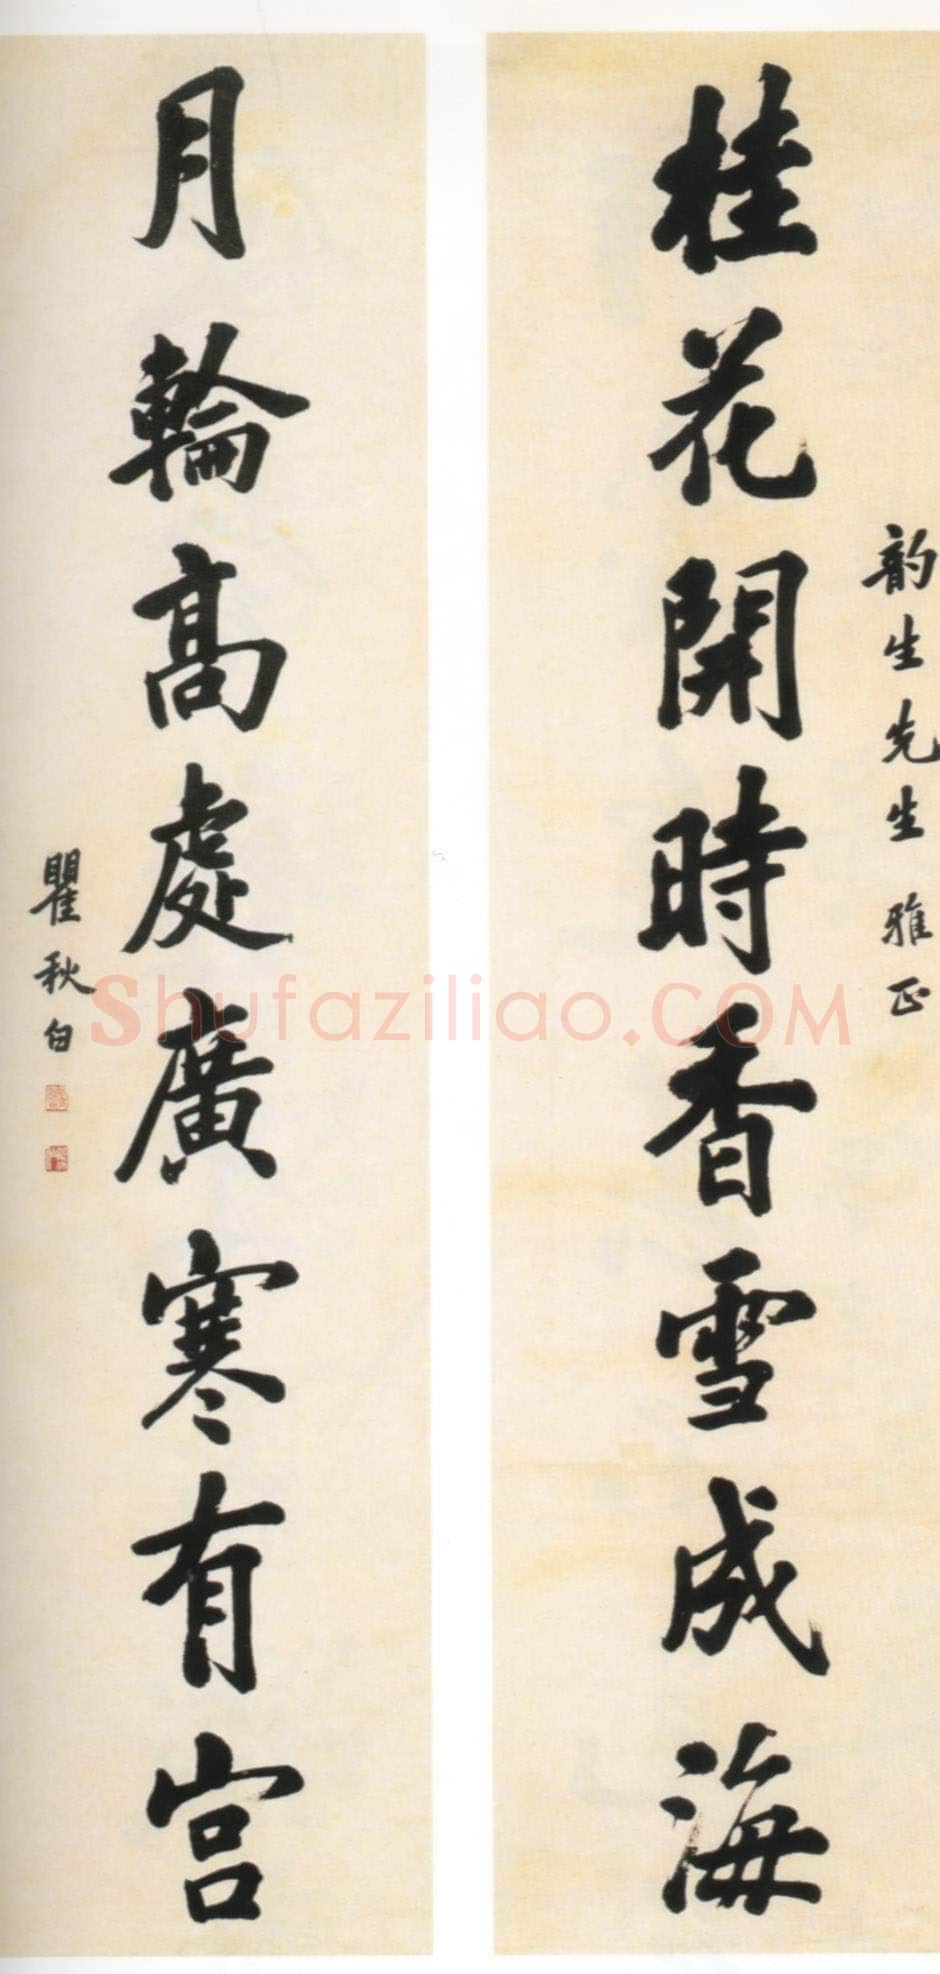 韵生先生雅正
桂花開時香雪成海
月輪高處廣寒有宮
瞿秋白
Shufaziliao.COM